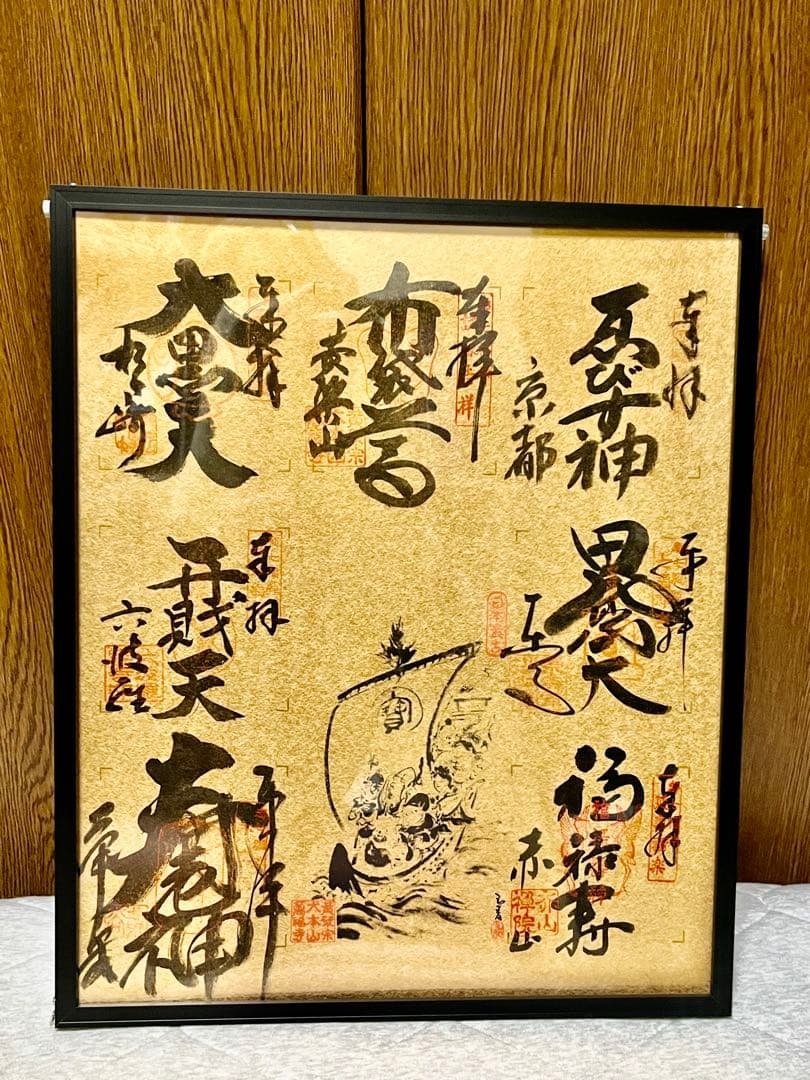 奉拝
ゑびす神
京都
奉拝
布袋尊
黄檗山
奉拝
大黒天
松ヶ崎
奉拝
毘沙門天
東寺
奉拝
弁財天
六波羅
奉拝
福禄寿
赤山
赤山
禅院
奉拝
寿老神
寶
黄檗宗
大本山
萬福寺